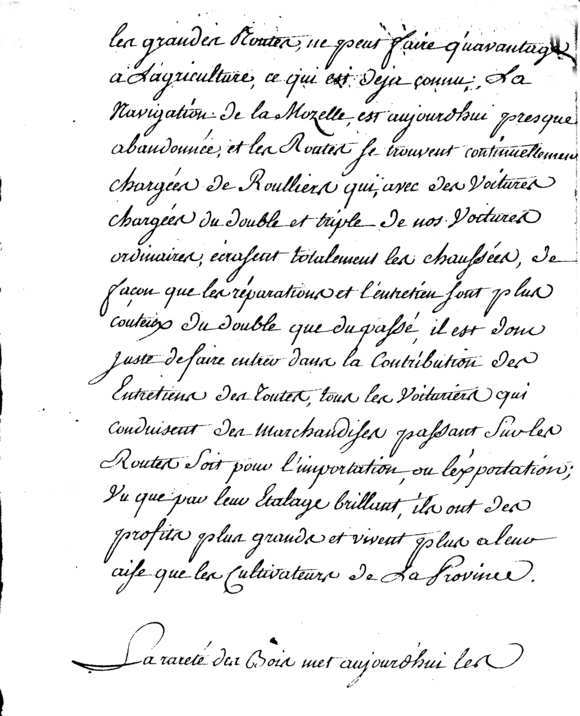 les grandes Routes, ne peut faire qu'avantage
a L'agriculture, ce qui est deja connu, La
Navigation de la Mozelle, est aujourd'hui presque
abandonnée, et les Routes se trouvent continuellement
chargées de Roulliers qui, avec des Voitures
chargées du double et triple de nos Voitures
ordinaires, écrasent totalement les chaussées, de
façon que les réparations et l'entretien sont plus
couteux du double que du passé, il est donc
juste de faire entrer dans la Contribution des
Entretiens des routes, tous les Voituriers qui
conduisent des Marchandises passant sur les
Routes soit pour l'importation, ou l'exportation;
Vu que par leur Etalage brillant, ils ont des
profits plus grands et vivent plus a leur
aise que les Cultivateurs de La Province.
La rareté des Bois met aujourd'hui les